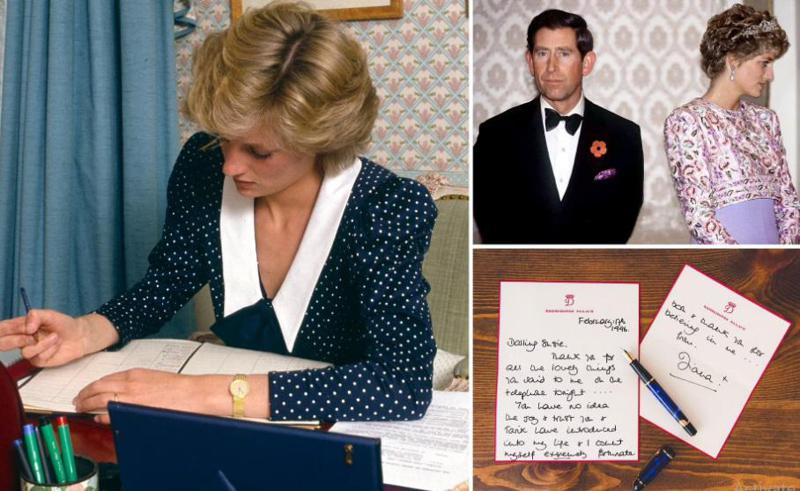 KENSINGTON PALACE
February 17th
1996.
Darling Susie.
Thank you for
all the lovely things
you said to me on the
telephone tonight ....
You have no idea
the joy & trust you &
Tarik have introduced
into my life & I count
myself extremely fortunate
KENSINGTON PALACE
& thank you for
believing in me ....
from,
Diana x
Activate